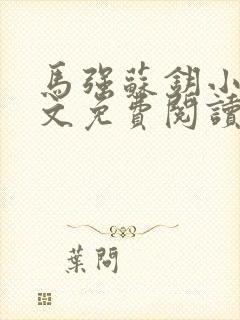 馬強蘇鈅小
文免費閱讀
葉問